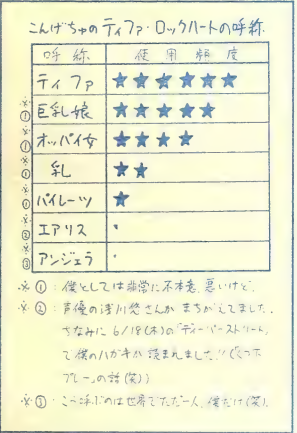 こんげちゅのティファ・ロックハートの呼称.
呼称 使用頻度
ティファ ★★★★★★
※① 巨乳娘 ★★★★★
※① オッパイ女 ★★★★
※① 乳 ★★
※① パイレーツ ★
※② エアリス
※③ アンジェラ
※①: 僕としては非常に不本意。悪いけど.
※②: 声優の浅川悠さんがまちがえてました.
ちなみに 6/18(木)の「ディーパーストリーム」
で僕のハガキが読まれました!!
プレー」の話(笑))
※③: こう呼ぶのは世界でただ一人、僕だけ(笑).